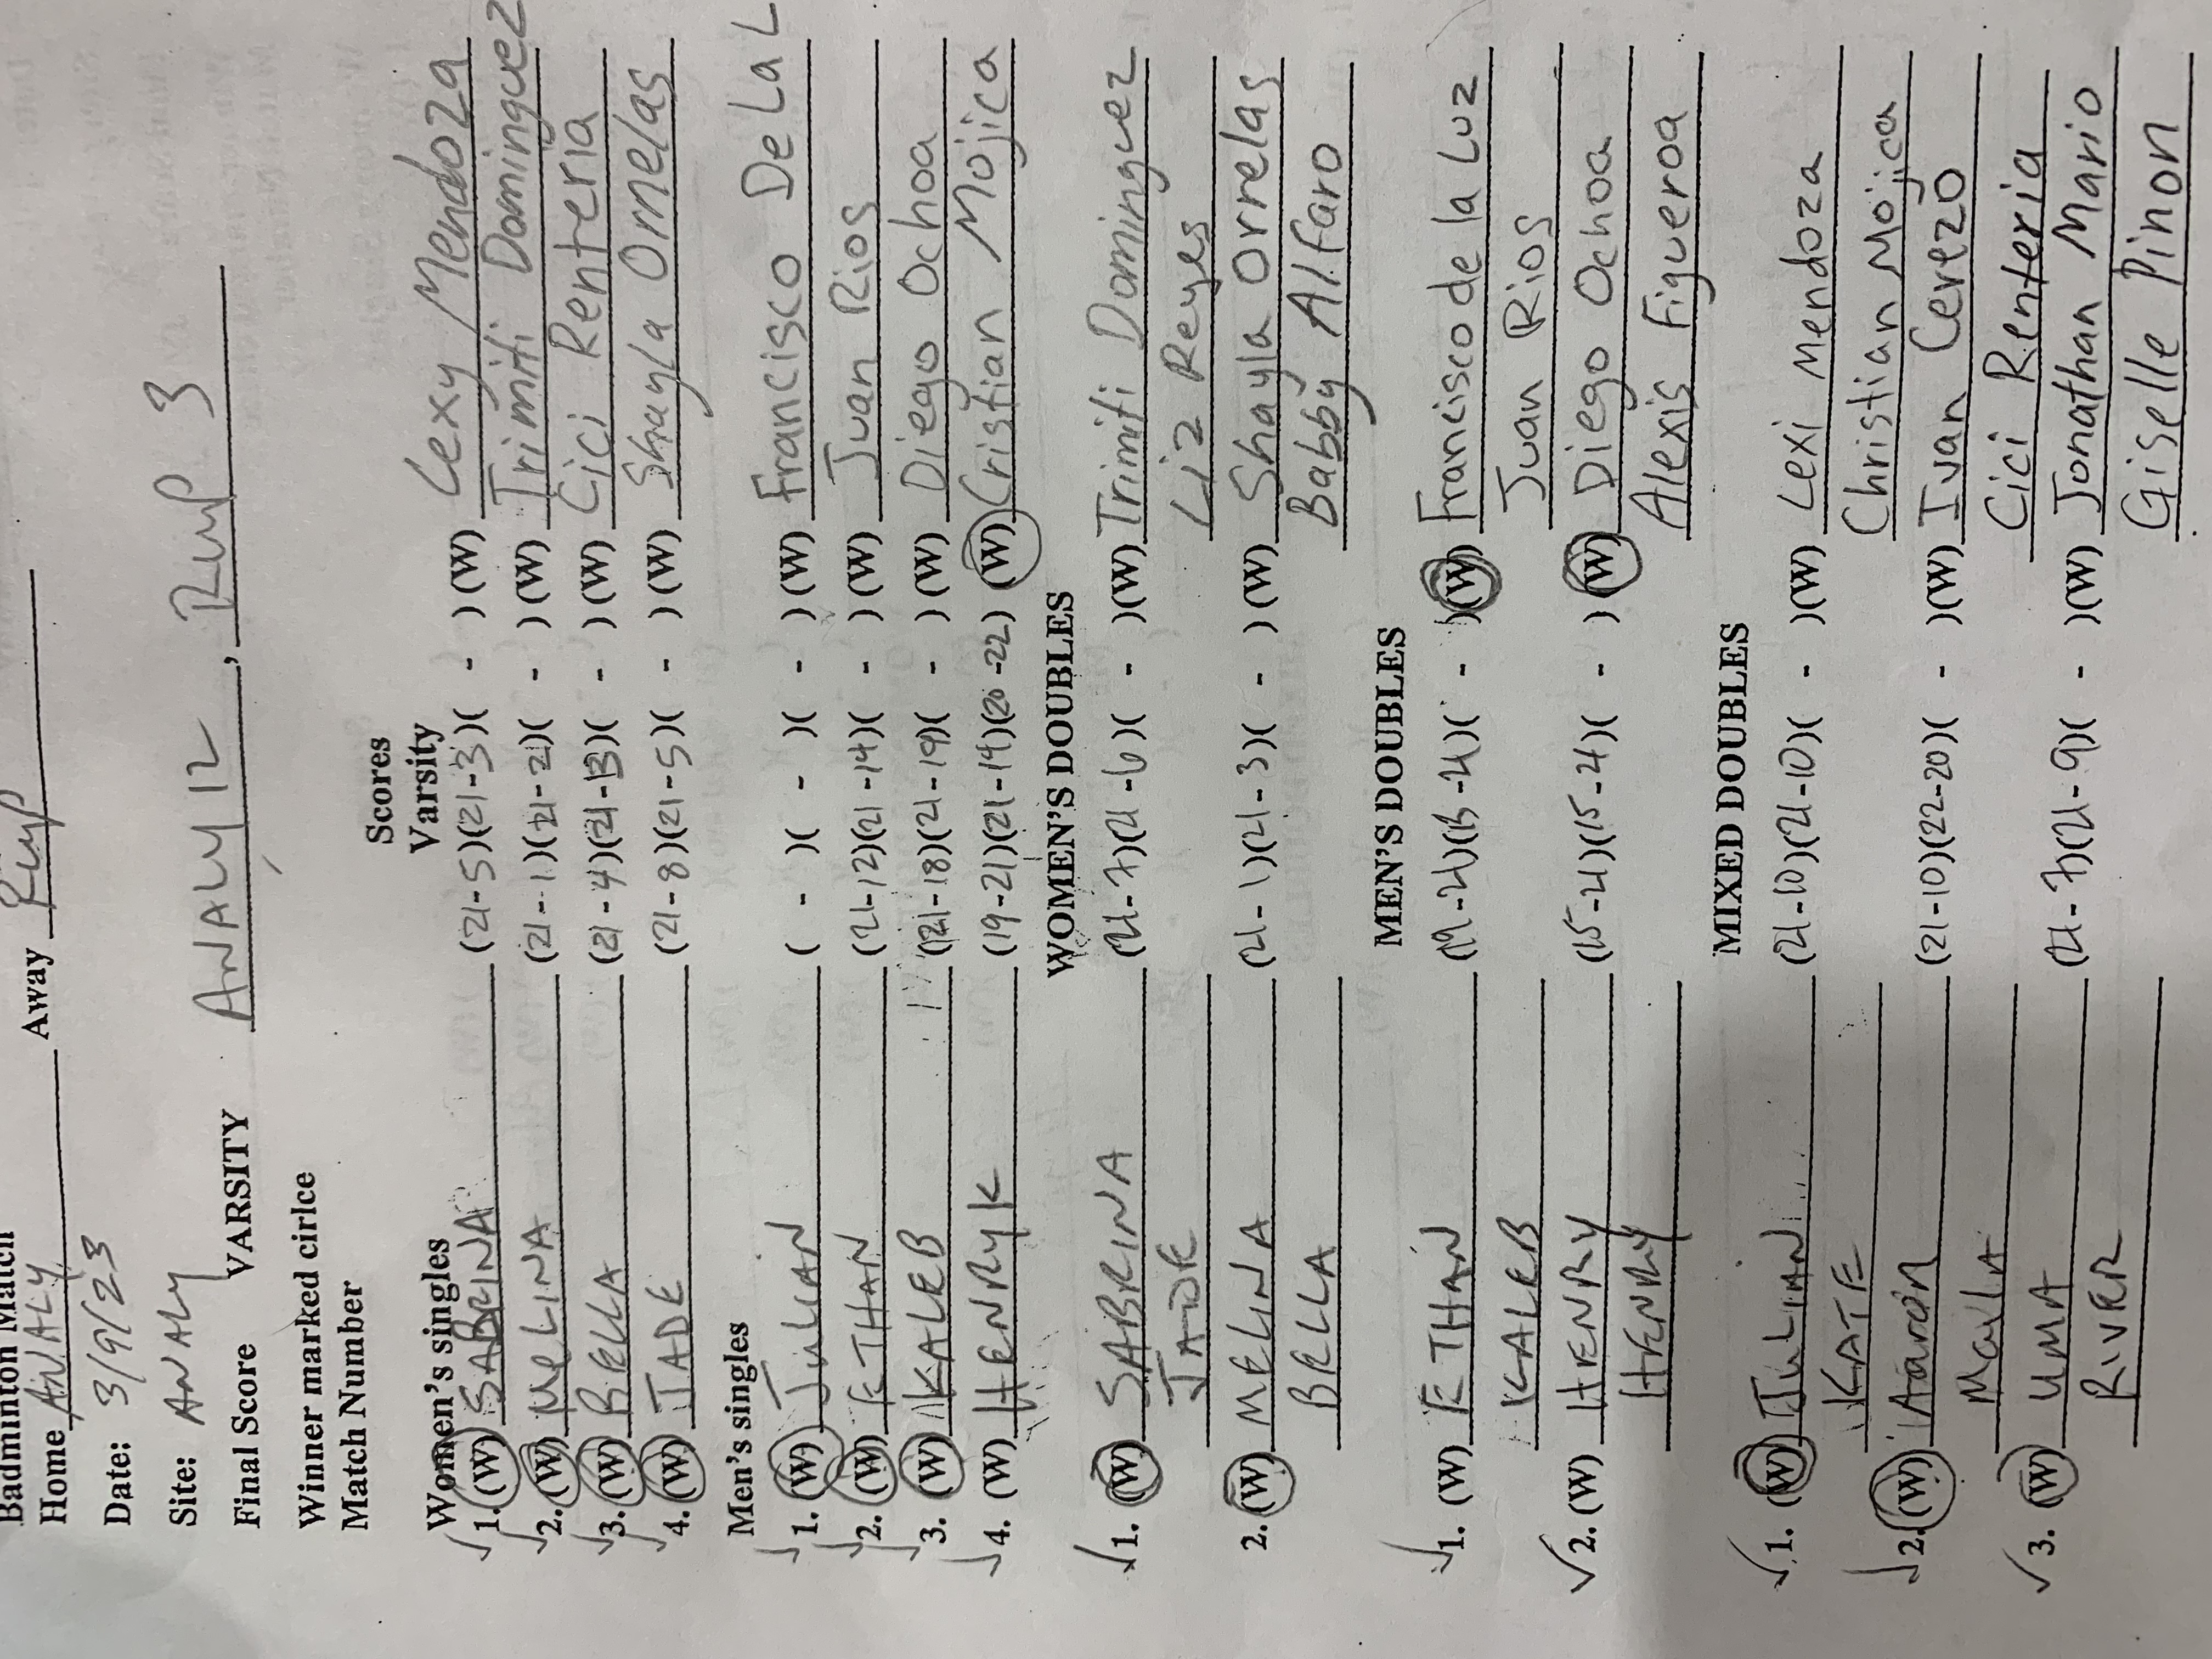 Badminton Match
Home ANALY Away RWP
Date: 3/9/23
Site: ANALY
Final Score VARSITY ANALY 12, RWP 3
Winner marked cirlce
Match Number
Scores
Varsity
Women's singles
1. (W) SABRINA (21-5)(21-3)( - ) (W) Lexy Mendoza
2. (W) MELINA (21-1)(21-2)( - ) (W) Trimiti Dominguez
3. (W) BELLA (21-4)(21-13)( - ) (W) Cici Renteria
4. (W) JADE (21-8)(21-5)( - ) (W) Shayla Ornelas
Men's singles
1. (W) JULIAN ( - )( - )( - ) (W) Francisco De La L
2. (W) ETHAN (21-12)(21-14)( - ) (W) Juan Rios
3. (W) KALEB (21-18)(21-19)( - ) (W) Diego Ochoa
4. (W) HENRYK (19-21)(21-19)(20-22) (W) Cristian Mojica
WOMEN'S DOUBLES
1. (W) SABRINA (21-7)(21-6)( - )(W) Trimiti Dominguez
JADE Liz Reyes
2. (W) MELINA (21-1)(21-3)( - ) (W) Shayla Ornelas
BELLA Babby Alfaro
MEN'S DOUBLES
1. (W) ETHAN (19-21)(13-21)( - )(W) Francisco de la Luz
KALEB Juan Rios
2. (W) HENRY (15-21)(15-21)( - ) (W) Diego Ochoa
HENRY Alexis Figueroa
MIXED DOUBLES
1. (W) JULIAN (21-10)(21-10)( - )(W) Lexi Mendoza
KATE Christian Mojica
2. (W) Aaron (21-10)(22-20)( - )(W) Ivan Cerezo
Cici Renteria
3. (W) UMA (21-7)(21-9)( - )(W) Jonathan Mario
RIVER Giselle Pinon